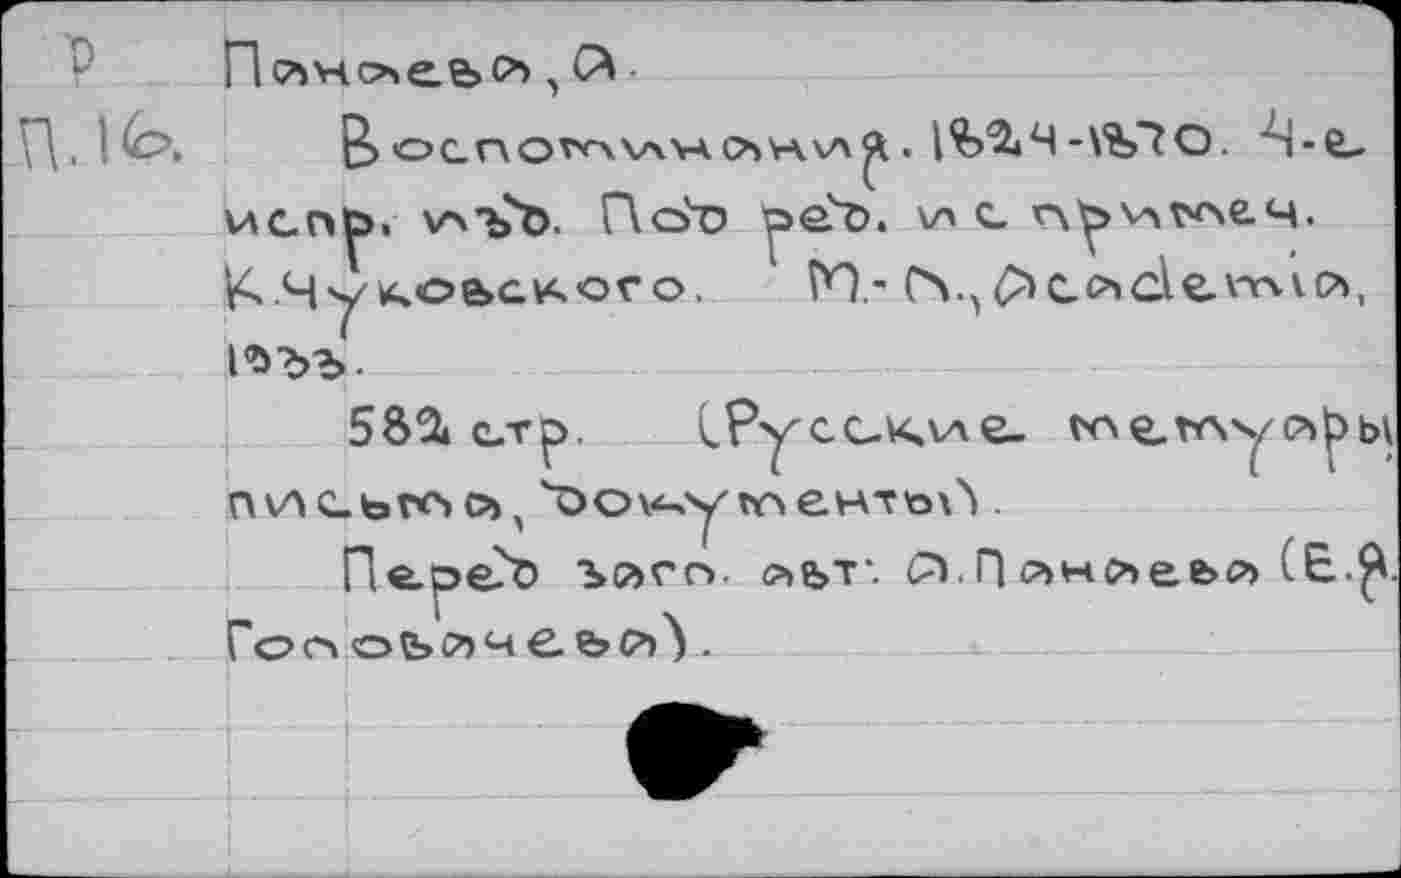 Р Панаева, А.
П.16. Воспоминания. 1824-1870. 4-е
испр. изд. Под ред. и с примеч.
К.Чуковского. М.-Л., Academia,
1933.
582 стр. (Русские мемуары,
письма, документы).
Перед загл. авт: А.Панаева (Е.Я.
Головачева).